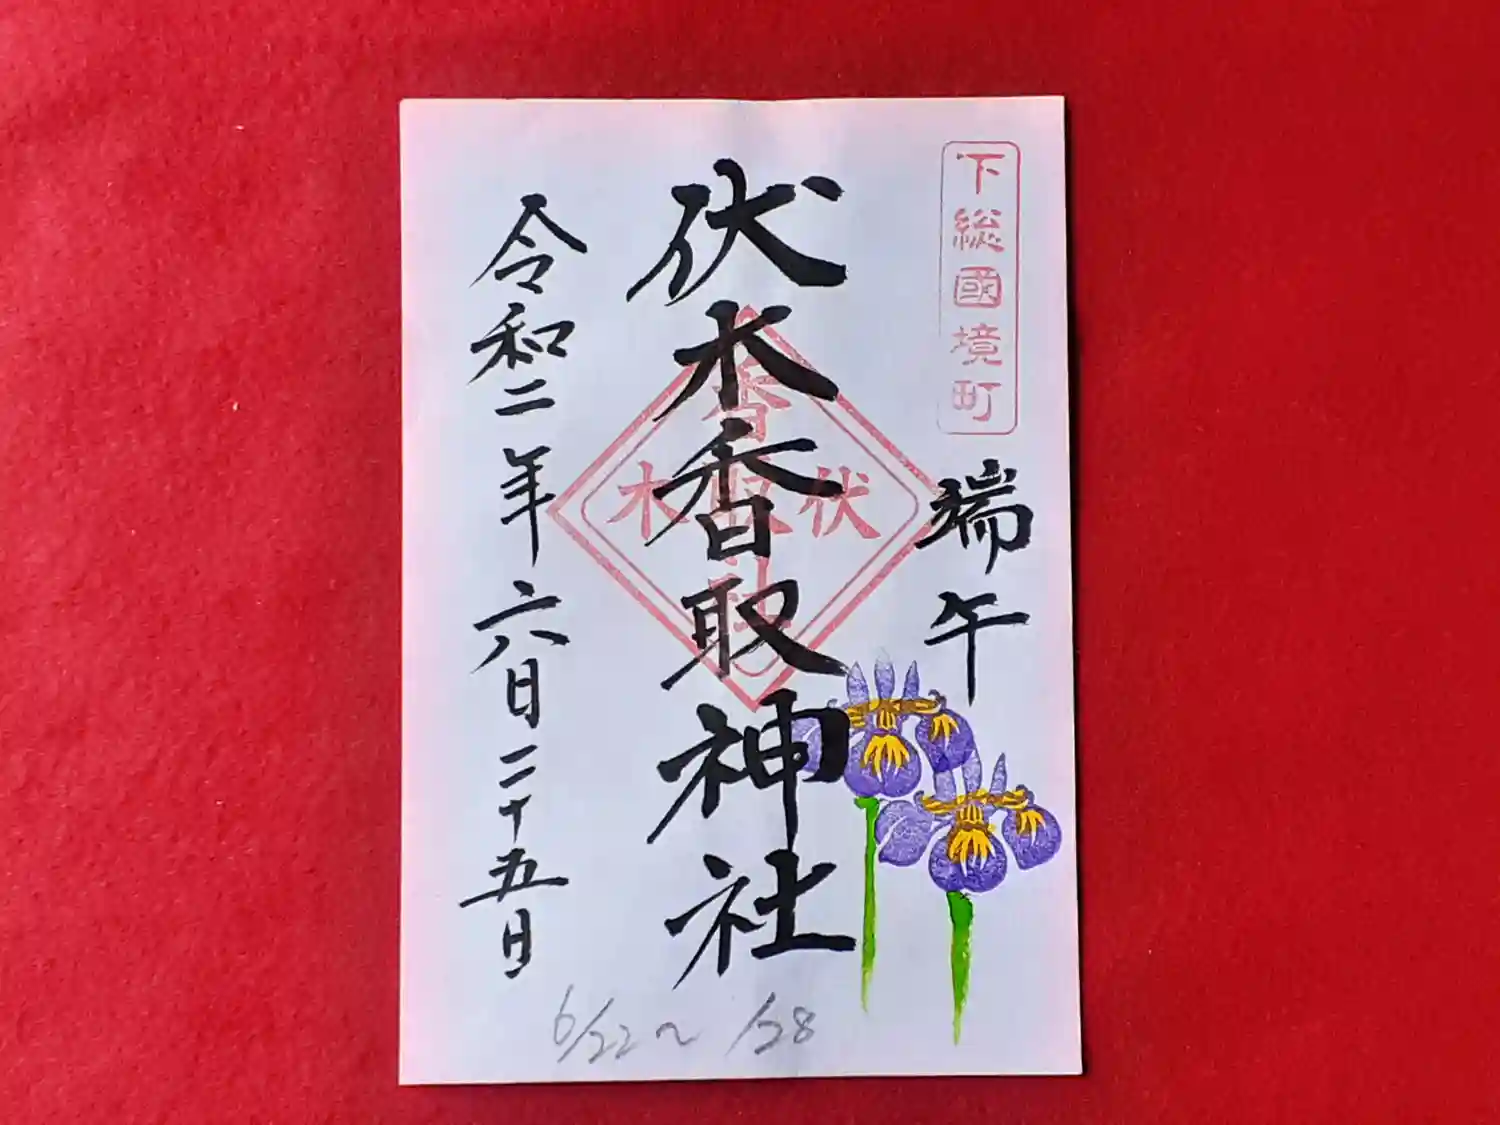 下総國境町
端午
伏木香取神社
伏木香取神社
令和二年六月二十五日
6/22～/28